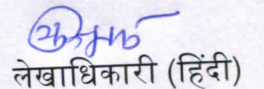 लेखाधिकारी (हिंदी)